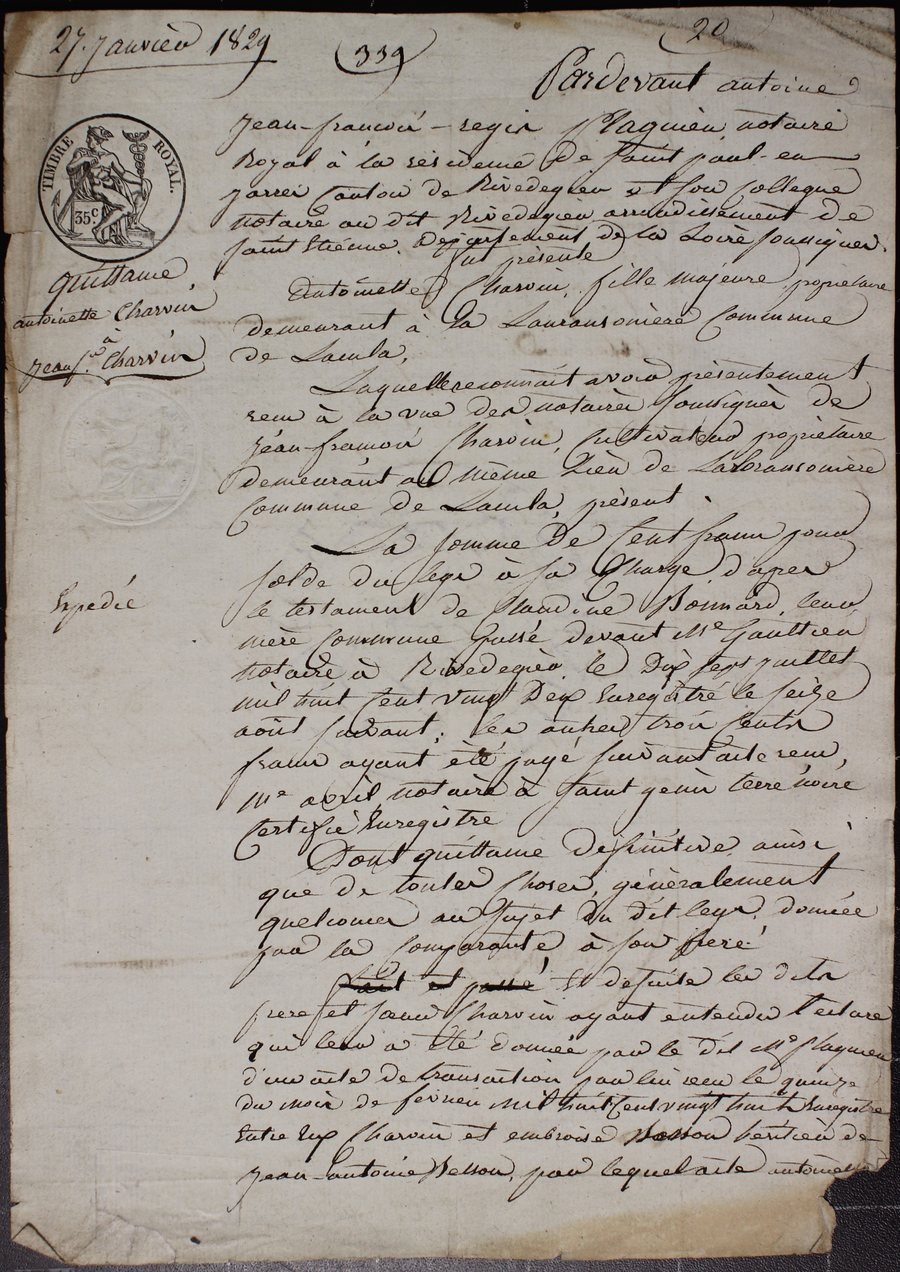 27. janvier 1829
(339)
20
Pardevant antoine
jean-francois-regis plagnieu, notaire
Royal à la residence de saint paul-en
jarrei Canton de Rivedegier et son collegue
notaire au dit Rivedegier arrondissement de
saint Etienne, Departement de la Loire soussignes.
fut présente
Antoinette Charvin, fille majeure propietaire
demeurant à la Lauransonière Commune
de Lacula,
Laquelle reconnait avoir présentement
recu à la vue des notaires soussignés de
jean-francois Charvin, Cultivateur propietaire
demeurant au même Lieu de La Lauransonière
Commune de Lacula, présent.
La somme de Cent francs pour
solde du legs à sa Charge d'apres
le testament de Claudine Bonnard, leur
mère Commune passé devant Me Gaultier
notaire à Rivedegier, le Dix sept juillet
mil huit Cent vingt Deux Enregistré le seize
août suivant; les autres trois Cents
francs ayant été payé suivant acte recu,
Me avril notaire à saint genis terre noire
Certifié Enregistré
Dont quittance definitive ainsi
que de toutes Choses, généralement
quelconces au sujet du dit legs, donnée
par la Comparante à son frere
Fait et passé Et desuite les dits
frere et soeur Charvin ayant entendu Lecture
qui leur a été donnée par le dit Me plagnieu
d'un acte de transaction par lui recu le quinze
du mois de fevrier mil huit Cent vingt huit Enregistré
Entre Eux Charvin et embroise Besson heritier de
jean-antoine Besson, par lequel acte antoinette
TIMBRE ROYAL.
35 c.
quittance
antoinette Charvin
à
jean f.ois Charvin
Expedié